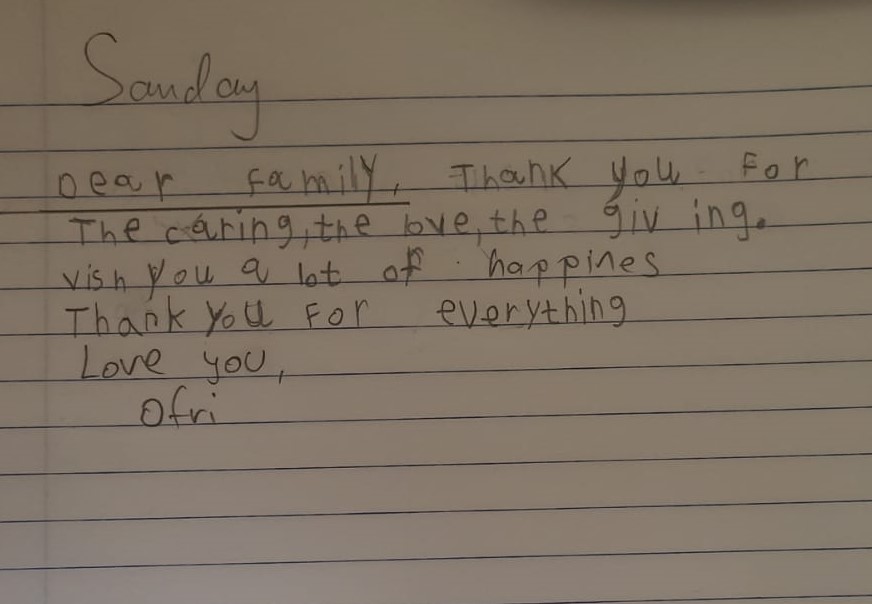 Sanday
Dear family, Thank you For
The caring, the love, the giving.
vish you a lot of happines
Thank you For everything
Love you,
Ofri